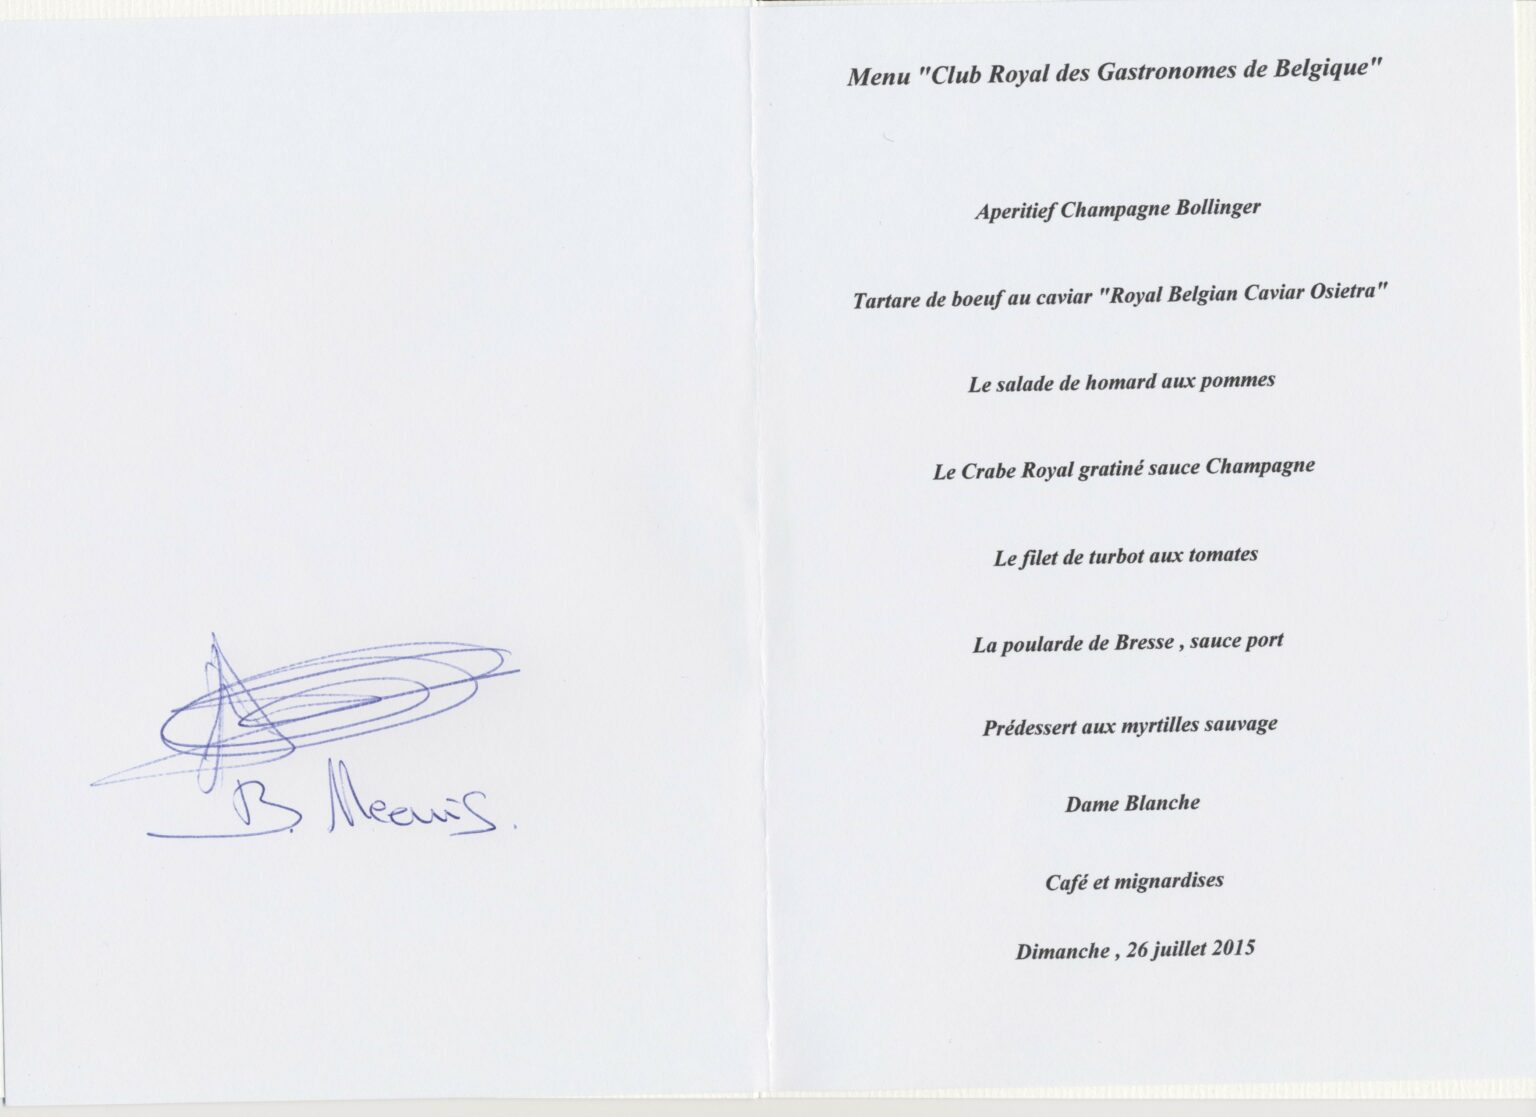 B.
Menu "Club Royal des Gastronomes de Belgique"
Aperitief Champagne Bollinger
Tartare de boeuf au caviar "Royal Belgian Caviar Osietra"
Le salade de homard aux pommes
Le Crabe Royal gratiné sauce Champagne
Le filet de turbot aux tomates
La poularde de Bresse , sauce port
Prédessert aux myrtilles sauvage
Dame Blanche
Café et mignardises
Dimanche , 26 juillet 2015